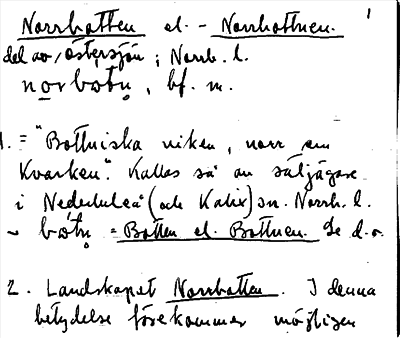 Norrbotten el. - Norrbottnen. 1
del av Östersjön, i Norrb. l.
norbotṇ, bf. m.
1. = "Bottniska viken, norr om
Kvarken". Kallas så av säljägare
i Nederluleå (och Kalix) sn. Norrb. l.
~ botṇ = Botten el. Bottnen. Se d.o.
2. Landskapet Norrbotten. I denna
betydelse förekommer möjligen